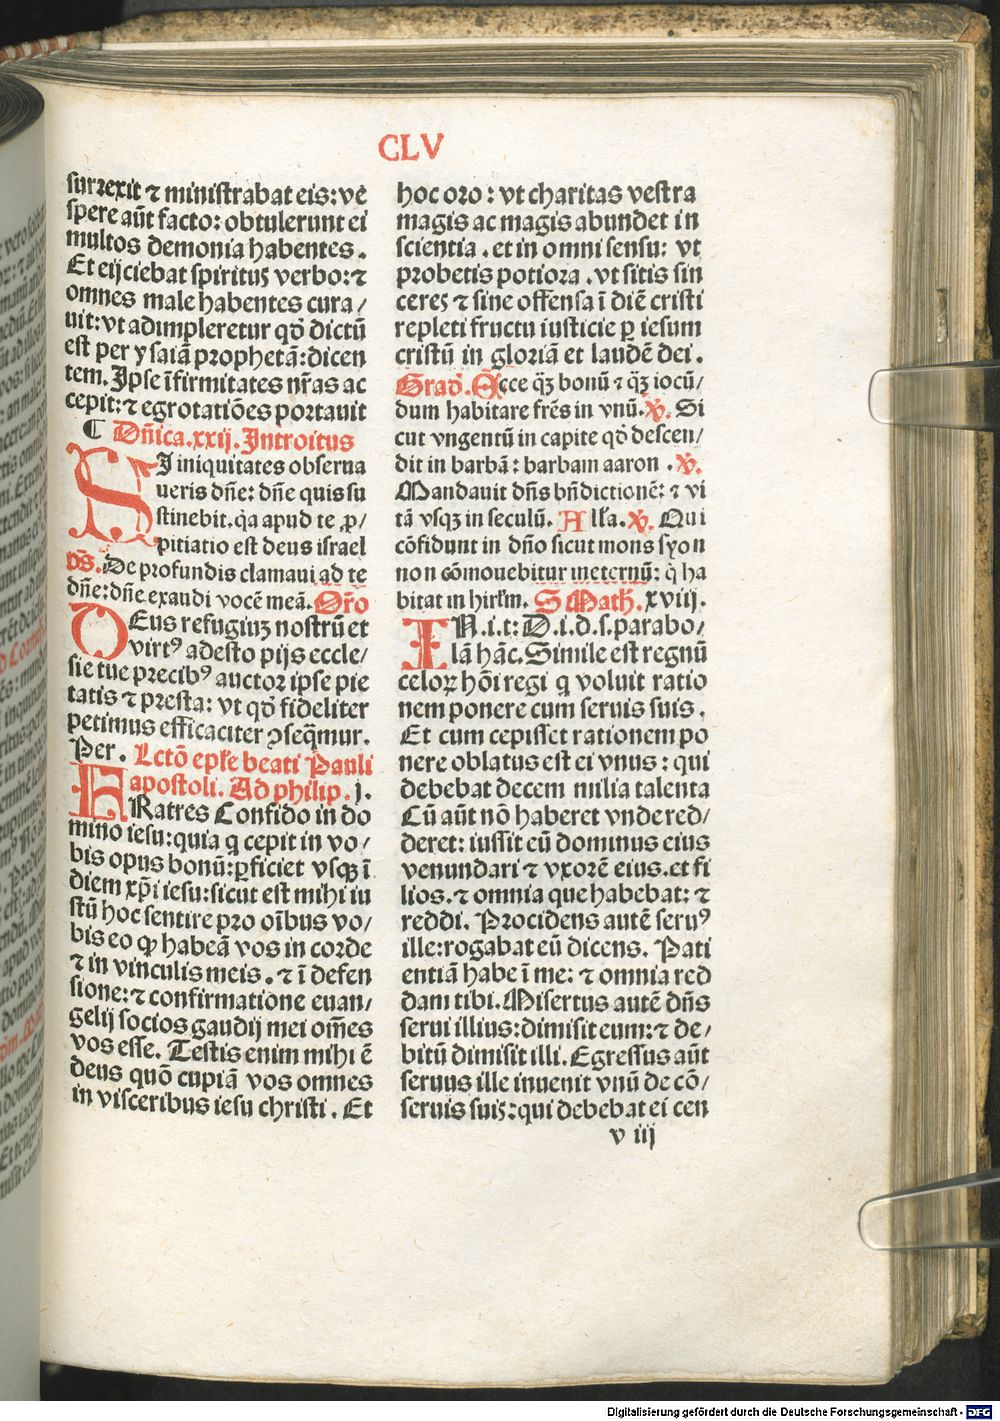 CLV
surrexit ⁊ ministrabat eis: ve
spere aūt facto: obtulerunt ei
multos demonia habentes.
Et eijciebat spiritus verbo: ⁊
omnes male habentes cura/
uit: vt adimpleretur qđ dictū
est per ysaiā prophetā: dicen
tem. Ipse īfirmitates nr̄as ac
cepit: ⁊ egrotatiōes portauit
¶ Dn̄ica. xxij. Introitus
SI iniquitates obserua
ueris dn̄e: dn̄e quis su
stinebit. q̇a apud te ꝓ/
pitiatio est deus israel
p̄s. De profundis clamaui ad te
dn̄e: dn̄e exaudi vocē meā. Or̄o
DEus refugiuꝫ nostrū et
virtꝰ adesto pijs eccle/
sie tue precibꝰ auctor ipse pie
tatis ⁊ presta: vt qđ fideliter
petimus efficaciter ꝯseq̄mur.
Per. Lctō epl̄e beati Pauli
apostoli. Ad philip. j.
FRatres Confido in do
mino iesu: quia q cepit in vo/
bis opus bonū: ꝑficiet vsqꝫ ī
diem xp̄i iesu: sicut est mihi iu
stū hoc sentire pro oībus vo/
bis eo ꝙ habeā vos in corde
⁊ in vinculis meis. ⁊ ī defen
sione: ⁊ confirmatione euan/
gelij socios gaudij mei om̄es
vos esse. Testis enim mihi ē
deus quō cupiā vos omnes
in visceribus iesu christi. Et
hoc oro: vt charitas vestra
magis ac magis abundet in
scientia. et in omni sensu: vt
probetis potiora. vt sitis sin
ceres ⁊ sine offensa ī diē cristi
repleti fructu iusticie ꝑ iesum
cristū in gloriā et laudē dei.
Grad. Ecce qꝫ̄ bonū ⁊ qꝫ̄ iocū/
dum habitare fr̄es in vnū. ℣. Si
cut vngentū in capite qđ descen/
dit in barbā: barbam aaron. ℣.
Mandauit dn̄s bn̄dictionē: ⁊ vi
tā vsqꝫ in seculū. Alľa. ℣. Qui
cōfidunt in dn̄o sicut mons syon
non cōmouebitur ineternū: q̇ ha
bitat in hirľm. S Math. xviij.
IN. i. t: D. i. d. s. parabo/
lā hāc. Simile est regnū
celoꝝ hōi regi q voluit ratio
nem ponere cum seruis suis.
Et cum cepisset rationem po
nere oblatus est ei vnus: qui
debebat decem milia talenta
Cū aūt nō haberet vnde red/
deret: iussit eū dominus eius
venundari ⁊ vxorē eius. et fi
lios. ⁊ omnia que habebat: ⁊
reddi. Procidens autē seruꝰ
ille: rogabat eū dicens. Pati
entiā habe ī me: ⁊ omnia red
dam tibi. Misertus autē dn̄s
serui illius: dimisit eum: ⁊ de/
bitū dimisit illi. Egressus aūt
seruus ille inuenit vnū de cō/
seruis suis: qui debebat ei cen
v iij
Digitalisierung gefördert durch die Deutsche Forschungsgemeinschaft - DFG